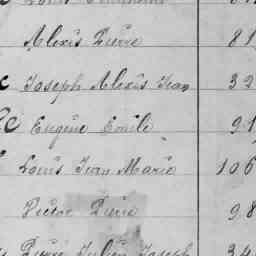 Louis
Alexis Pierre 81
c Joseph Alexis Jean 32
c Eugène Emile 91
Louis Jean Marie 106
Victor Pierre 98
Pierre Julien Joseph 34